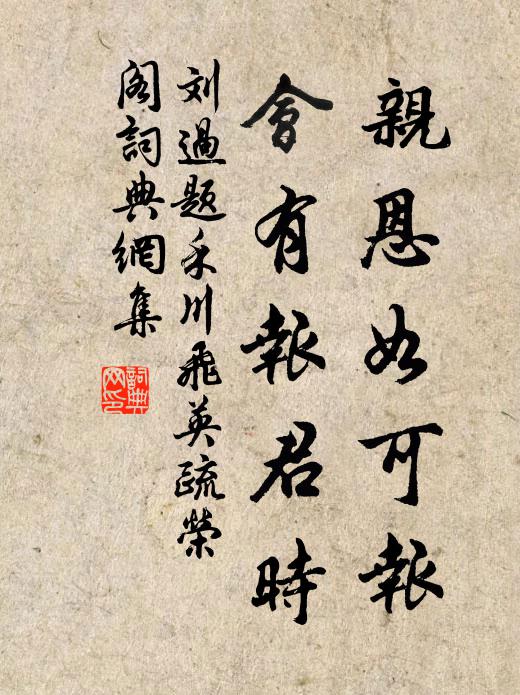 親恩如可報
會有報君時
刘過題禾川飛英疏榮
阁詞典網集
詞典網印